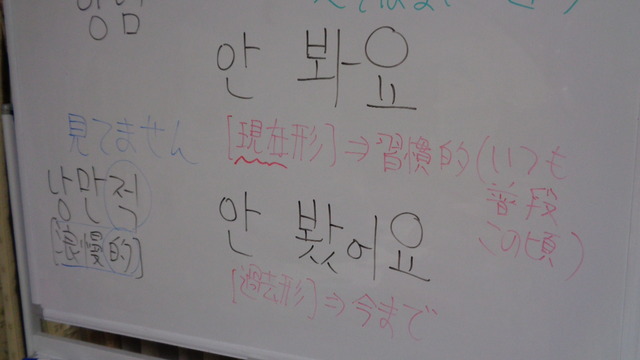 안 봐요
見てません
[現在形]⇒習慣的(いつも
普段
この頃)
낭만적
[浪慢的]
안 봤어요
[過去形]⇒今まで